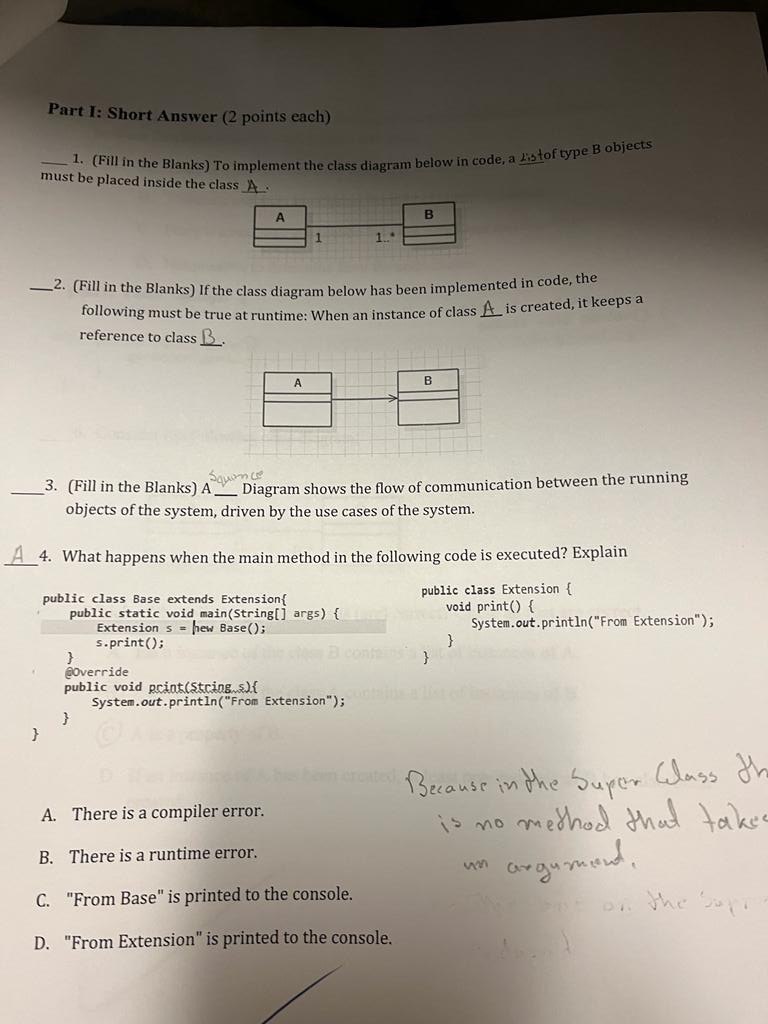 Part I: Short Answer (2 points each)
___ 1. (Fill in the Blanks) To implement the class diagram below in code, a List of type B objects
must be placed inside the class A.
A
B
1
1..*
___2. (Fill in the Blanks) If the class diagram below has been implemented in code, the
following must be true at runtime: When an instance of class A is created, it keeps a
reference to class B.
A
B
Squence
___3. (Fill in the Blanks) A ___ Diagram shows the flow of communication between the running
objects of the system, driven by the use cases of the system.
A 4. What happens when the main method in the following code is executed? Explain
public class Base extends Extension{
public static void main(String[] args) {
Extension s = new Base();
s.print();
}
@Override
public void print(String s){
System.out.println("From Extension");
}
}
public class Extension {
void print() {
System.out.println("From Extension");
}
}
Because in the Super Class th
is no method that takes
an argument.
A. There is a compiler error.
B. There is a runtime error.
C. "From Base" is printed to the console.
D. "From Extension" is printed to the console.